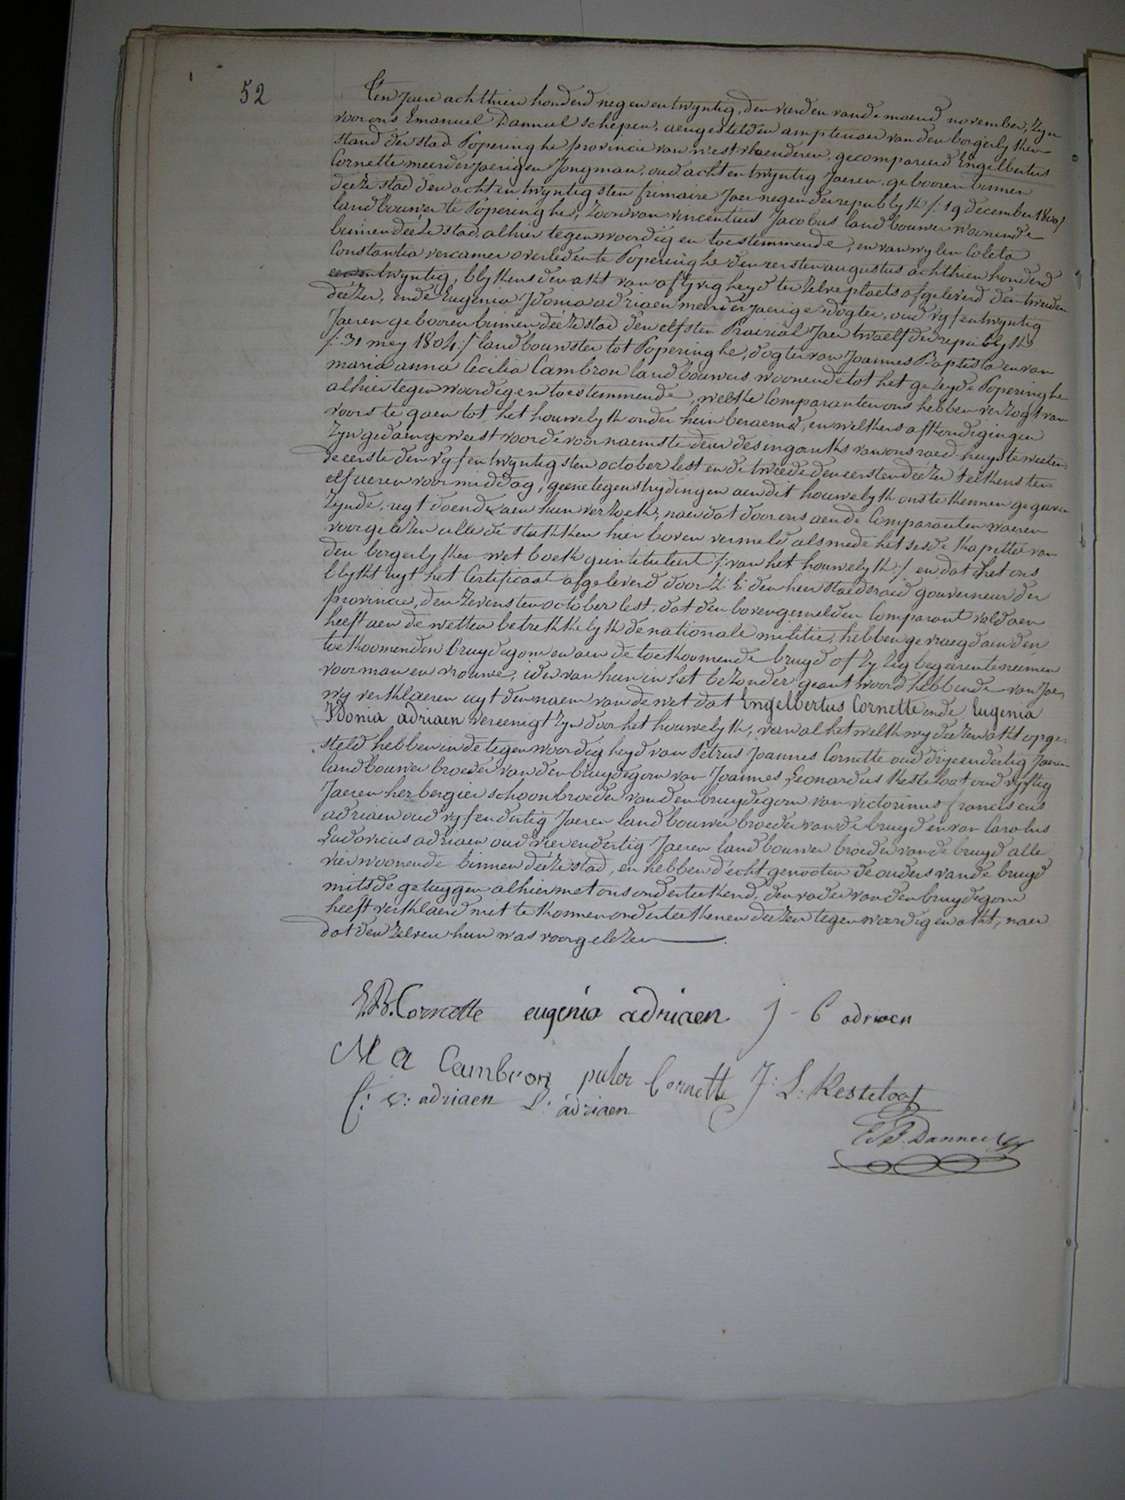 52
Ten Jaere achthien honderd negen en twyntig, den vierden van de maend november, zyn
voor ons Emanuel Danneel schepen, aengestelden amptenaer van den borgerlyken
stand der stad Poperinghe provincie van west vlaenderen, gecompareerd Engelbertus
Cornette meerderjaerigen Jongman, oud acht en twyntig Jaeren, gebooren binnen
deeze stad den acht en twyntigsten frimaire Jaer negen der republyk /: 19 december 1800 :/
landbouwer te Poperinghe, zoon van vincentius Jacobus landbouwer woonende
binnen deeze stad, alhier tegenwoordig en toestemmende, en van wylen Coleta
Constantia vercamer overleden te Poperinghe den eersten augustus achthien honderd
twyntig, blykens den akt van aflyvigheyd ter zelve plaets afgeleverd den tweeden
deezer, ende Eugenia Idonia adriaen meerderjaerige dogter, oud vyf en twyntig
Jaeren gebooren binnen deeze stad den elfsten Prairial Jaer twaelf der republyk
/: 31 mey 1804 :/ landbouwster tot Poperinghe, dogter van Joannes Baptista en van
maria anna Cecilia Cambron landbouwers woonende tot het gezeyde Poperinghe
alhier tegenwoordig en toestemmende, welke Comparanten ons hebben verzogt van
voorts te gaen tot het houwelyk onder hun beraemd, en welkers afkondigingen
zyn gedaen geweest voor de voornaemste deur des ingankx van ons raed-huys te weeten
de eerste den vyf en twyntigsten october lest en de tweede den eersten deezer telkens ten
elf ueren voor middag, geene tegenstrydingen aen dit houwelyk ons te kennen gegeven
zynde, regt doende aen hun verzoek, naer dat door ons aen de Comparanten waeren
voorgelezen alle de stukken hier boven vermeld alsmede het sesde kapittel van
den borgerlyken wet boek geintituleert /: van het houwelyk :/ en dat het ons
blykt uyt het Certificaat afgeleverd door Z: E: den heer staedsraed gouverneur der
provincie, den zevensten october lest, dat den bovengemelden Comparant voldaen
heeft aen de wetten betrekkelyk de nationale militie, hebben gevraegd aen den
toekoomenden bruydegom en aen de toekoomende bruyd of zy zig begeeren te neemen
voor man en vrouwe, ider van hun in het bezonder geantwoord hebbende van Jae,
wy verklaeren uyt den naem van de wet dat Engelbertus Cornette ende Eugenia
Idonia adriaen vereenigt zyn door het houwelyk, van al het welk wy deezen akt opge-
steld hebben in de tegenwoordigheyd van Petrus Joannes Cornette oud dryendertig Jaeren
landbouwer broeder van den bruydegom van Joannes Leonardus Kesteloot oud vyftig
Jaeren herbergier schoonbroeder van den bruydegom van victorinus franciscus
adriaen oud vyfendertig Jaeren landbouwer broeder van de bruyd en van Carolus
Ludovicus adriaen oud vierendertig Jaeren landbouwer broeder van de bruyd alle
vier woonende binnen deeze stad, en hebben d'echtgenooten de ouders van de bruyd
mitsde getuygen alhier met ons onderteekend, den vader van den bruydegom
heeft verklaerd niet te konnen onderteekenen deezen tegenwoordigen akt, naer
dat den zelven hun was voorgelezen.
E.B. Cornette eugenia adriaen j - b adriaen
M a Cambron pieter Cornette J: L: Kesteloot
f: v: adriaen L: adriaen
E. Danneel